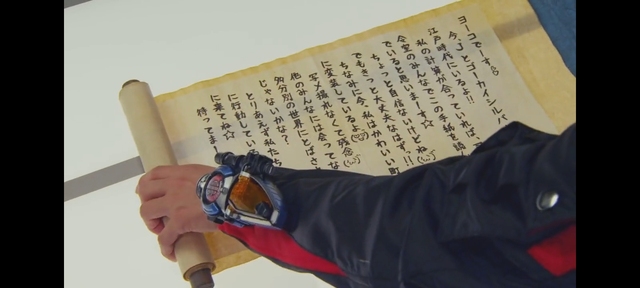 ヨーコでーす。
今、Jとゴーカイシルバ
江戸時代にいるよ!!
私の計算が合っていれば、
今空のみんなでこの手紙を読
でいると思います。☆
ちょっと自信ないけどね
でもきっと大丈夫なはずっ!!
ちなみに今、私はかわいい町
に変装しているよ
写メ撮れなくて残念
他のみんなには会ってな
多分別の世界にとばさ
じゃないかな?
とりあえず私たち
に行動している
に来てね☆
待ってま